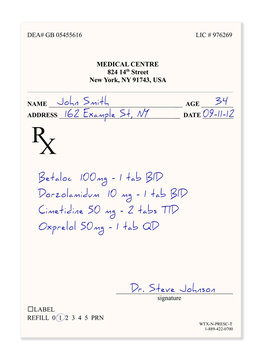 DEA# GB 05455616 LIC # 976269
MEDICAL CENTRE
824 14th Street
New York, NY 91743, USA
NAME John Smith AGE 34
ADDRESS 162 Example St, NY DATE 09-11-12
Rx
Betaloc 100mg - 1 tab BID
Dorzolamidum 10 mg - 1 tab BID
Cimetidine 50 mg - 2 tabs TID
Oxprelol 50mg - 1 tab QD
Dr. Steve Johnson
signature
LABEL
REFILL 0 1 2 3 4 5 PRN
WTX-N-PRESC-T
1-889-422-0700